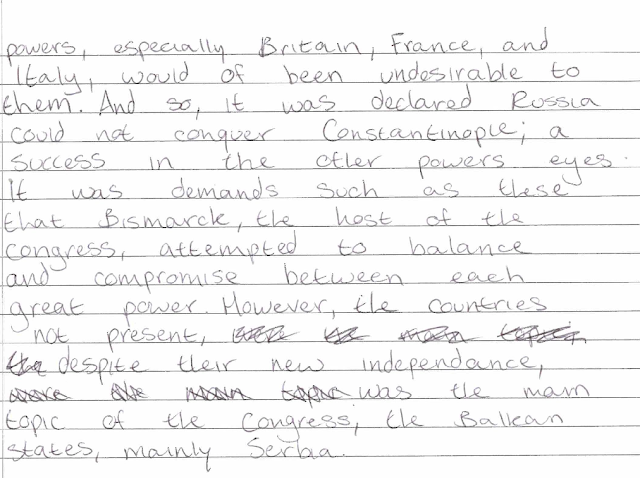 powers, especially Britain, France, and
Italy, would of been undesirable to
them. And so, it was declared Russia
could not conquer Constantinople; a
success in the other powers eyes.
It was demands such as these
that Bismarck, the host of the
congress, attempted to balance
and compromise between each
great power. However, the countries
not present,
despite their new independance,
was the main
topic of the Congress, the Balkan
states, mainly Serbia.